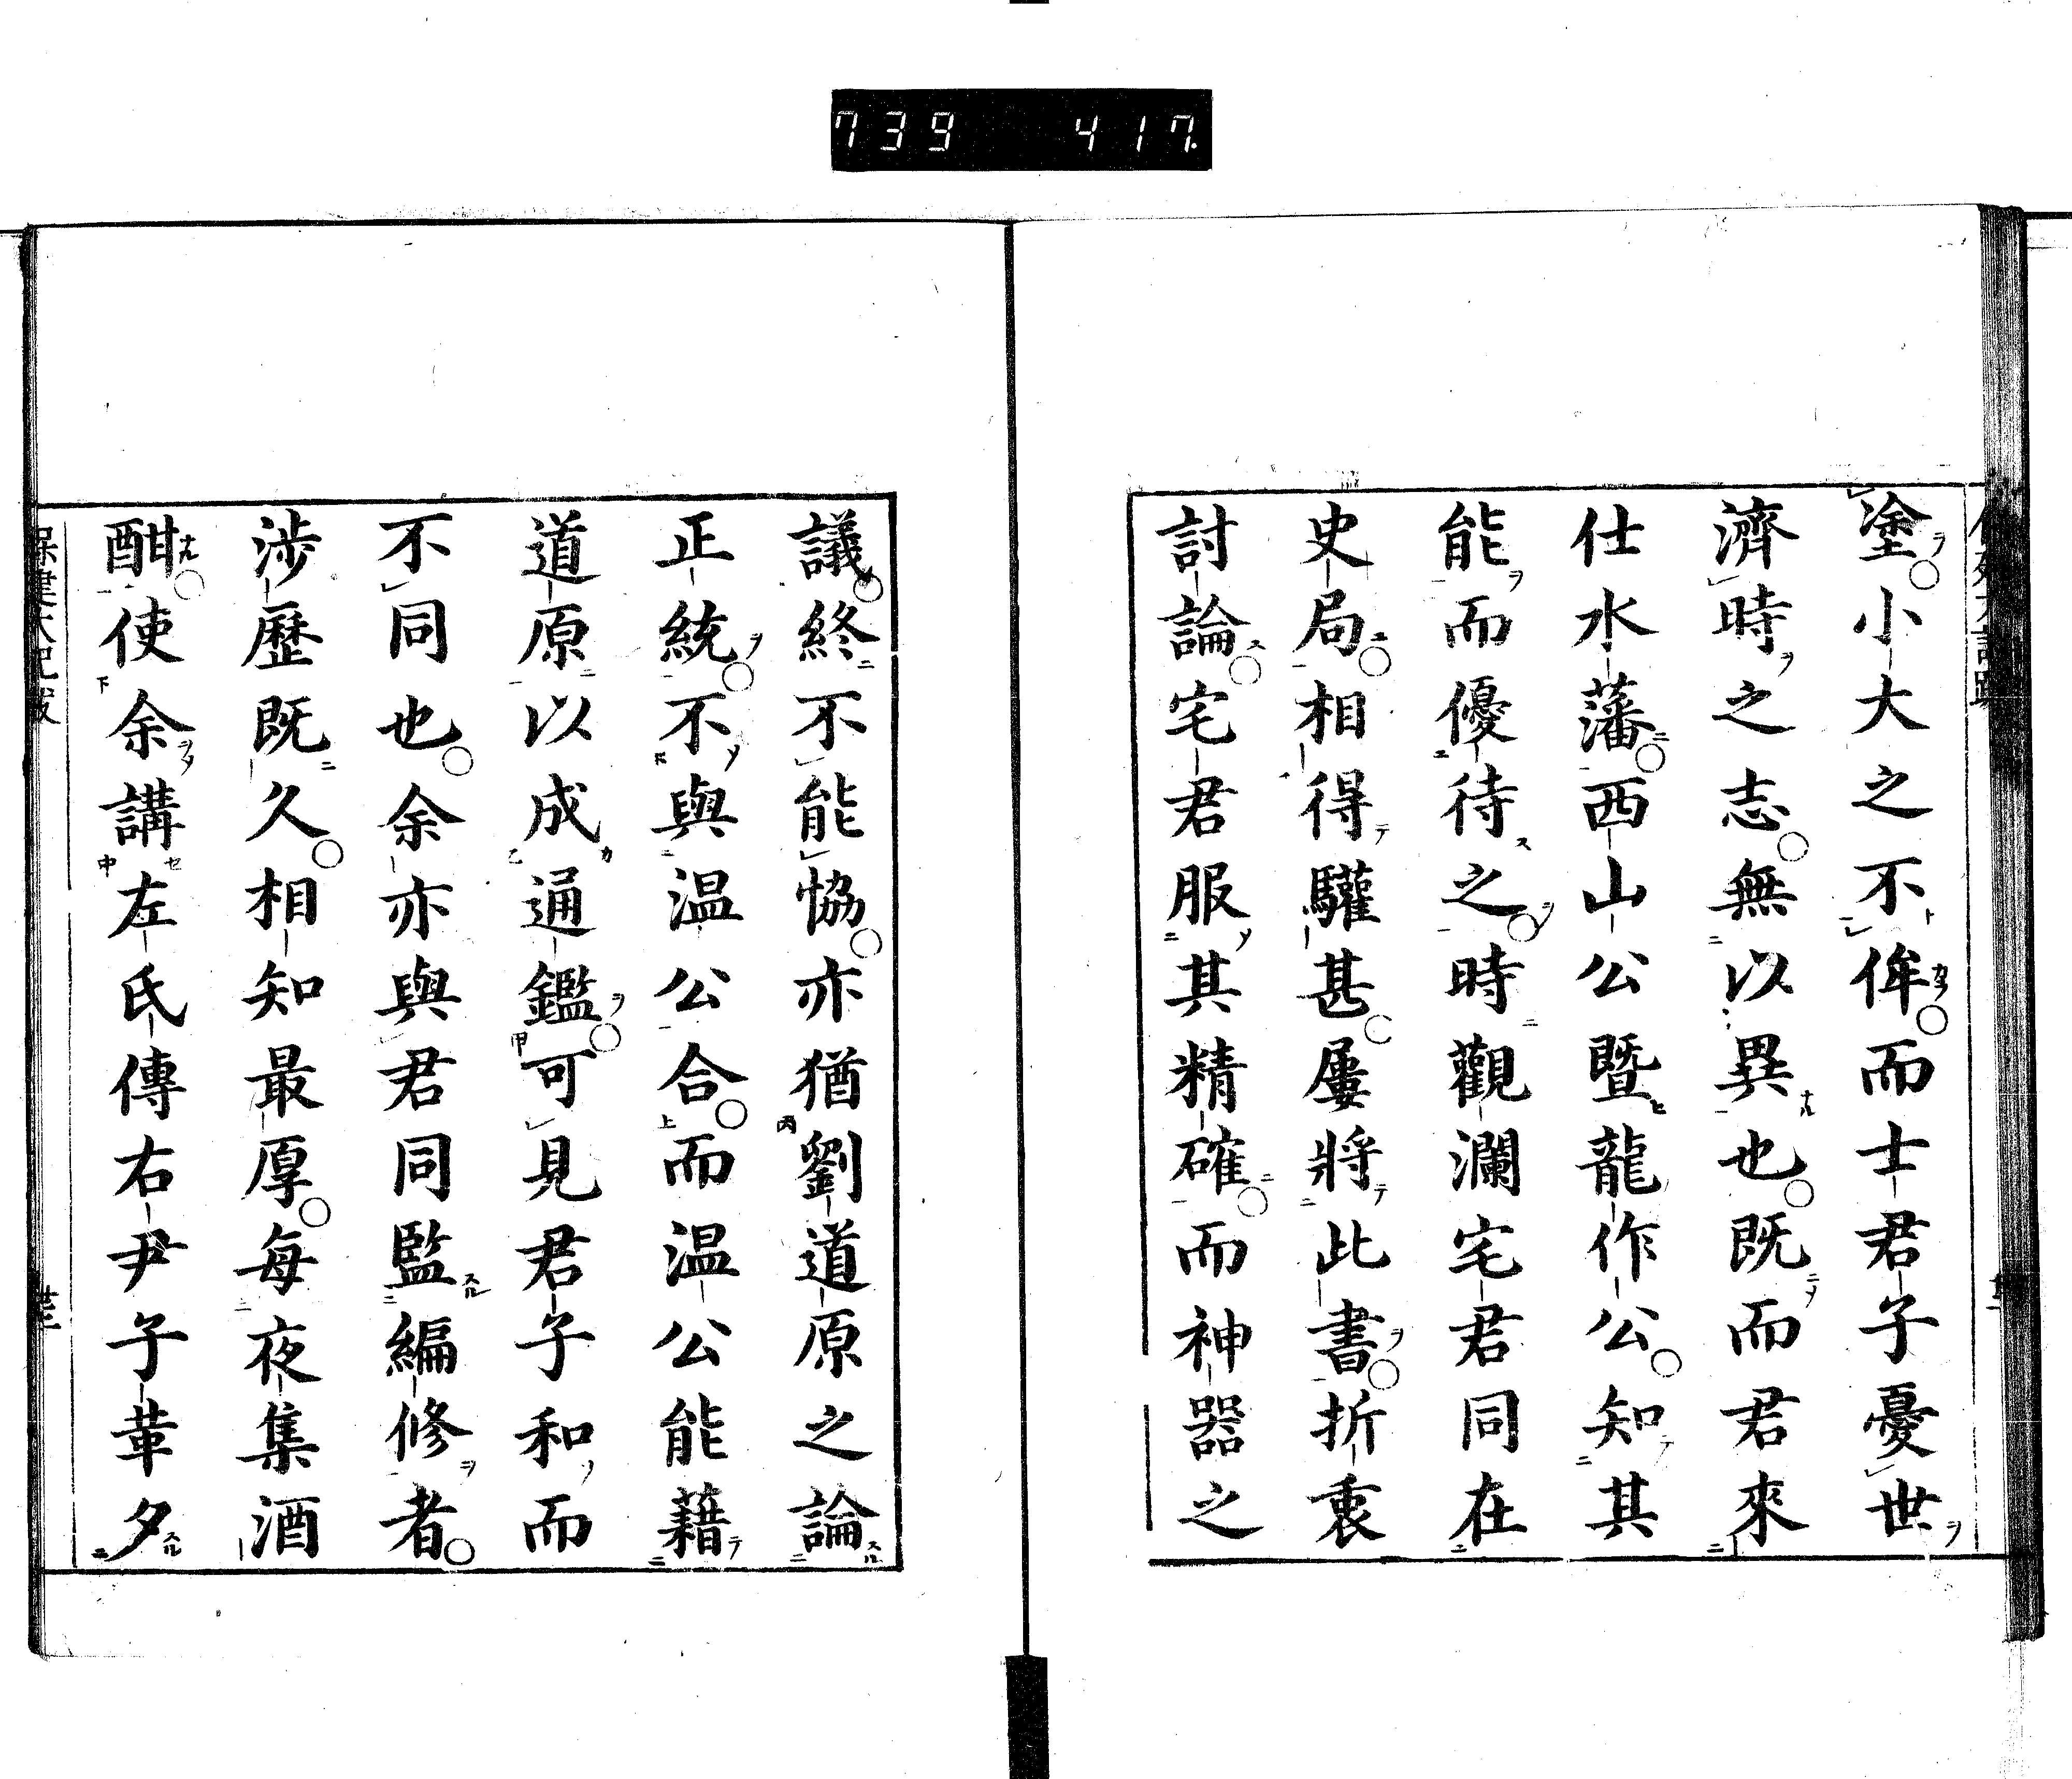 739 417
塗小大之不侔而士君子憂世
濟時之志無以異也既而君來
仕水藩西山公曁龍作公知其
能而優待之時觀瀾宅君同在
史局相得驩甚屢將此書折衷
討論宅君服其精確而神器之
議終不能恊亦猶劉道原之論
正統不與温公合而温公能藉
道原以成通鑑可見君子和而
不同也余亦與君同監編修者
涉歷既久相知最厚每夜集酒
酣使余講左氏傳右尹子革夕
保建大記跋